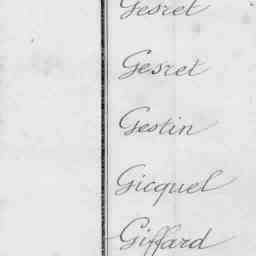 Gesret
Gesret
Gestin
Gicquel
Giffard